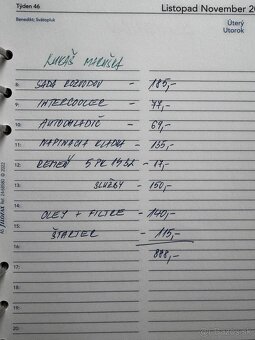 Týden 46
Listopad November 20
Benedikt; Svätopluk
Úterý
Utorok
LUKÁŠ MARUŠKA
8 SADA ROZVODOV - 185,-
9 INTERCOOLER - 77,-
10 AUTOCHLADIČ - 69,-
11 NAPINACIA KLADKA - 135,-
12 REMEŇ 5 PK - 17,-
13 SLUŽBY - 150,-
14 OLEJ + FILTRE - 140,-
15 ŠTARTER - 115,-
16
17 888,-
18
19
20